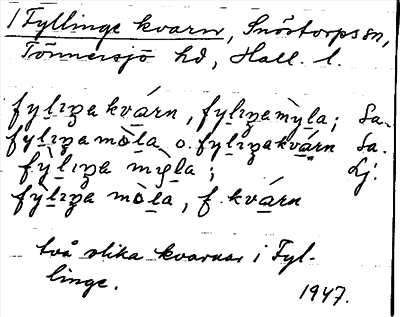 / Fyllinge kvarn, Snöstorps sn,
Tönnersjö hd, Hall. l.
fy̲lɪŋa kvárn, fylɪŋa mỳ̲la; Sa.
fy̲lɪŋa mò̲la o. fy̲lɪŋakvá̲rn Sa.
fỳlɪŋa mỳ̲la; Lj.
fỳlɪŋa mò̲la, f. kvá̲rn
två olika kvarnar i Fyl-
linge.
1947.